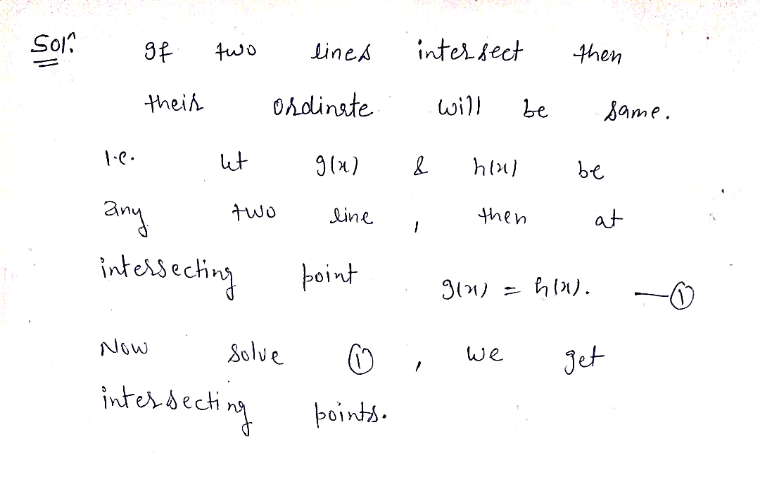 Solⁿ. If two lines intersect then
their ordinate will be same.
i.e. let g(x) & h(x) be
any two line, then at
interssecting point g(x) = h(x). —①
Now solve ①, we get
intersecting points.